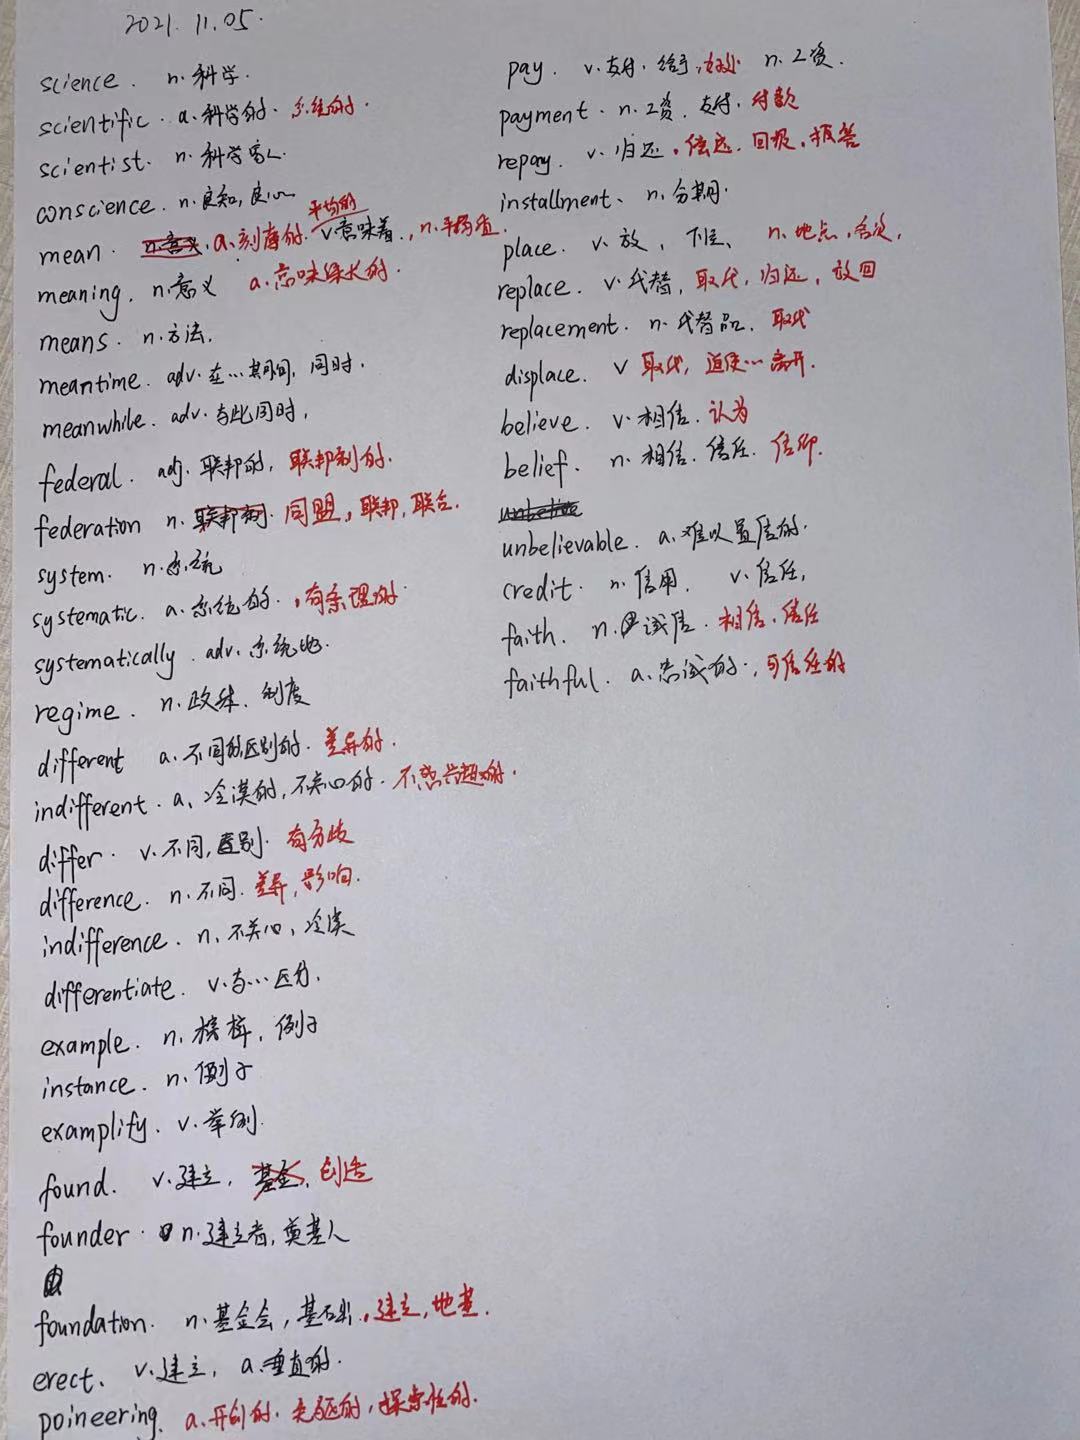 2021.11.05.
science. n.科学.
scientific. a.科学的. 系统的.
scientist. n.科学家.
conscience. n.良知,良心
mean. n.意义. a.刻薄的. 平均的 v.意味着, n.平均值.
meaning. n.意义 a.意味深长的.
means. n.方法.
meantime. adv.在…期间, 同时.
meanwhile. adv.与此同时,
federal. adj.联邦的, 联邦制的.
federation n.联邦制. 同盟, 联邦, 联合.
system. n.系统
systematic. a.系统的. ,有条理的.
systematically. adv.系统地.
regime. n.政体、制度
different a.不同的区别的. 差异的.
indifferent. a、冷漠的,不关心的. 不感兴趣的.
differ. v.不同,区别. 有分歧
difference. n.不同. 差异,影响.
indifference. n、不关心、冷漠
differentiate. v.与…区分.
example. n、榜样,例子
instance. n.例子
examplify. v.举例.
found. v.建立, 基金、创造
founder. n.建立者,奠基人
foundation. n.基金会,基础,建立,地基.
erect、 v.建立, a.垂直的.
poineering. a.开创的. 先驱的,探索性的.
pay. v.支付.给予,好处 n.工资.
payment. n.工资. 支付. 付款
repay. v.归还,偿还. 回报,报答
installment、 n.分期.
place. v.放, 下注、 n.地点,名次,
replace. v.代替, 取代,归还,放回
replacement. n.代替品. 取代
displace. v 取代, 迫使…离开.
believe. v.相信. 认为
belief. n.相信.信任. 信仰.
unbelievable. a.难以置信的.
credit. n.信用. v.信任,
faith. n.诚信. 相信、信任
faithful. a.忠诚的. ,可信任的